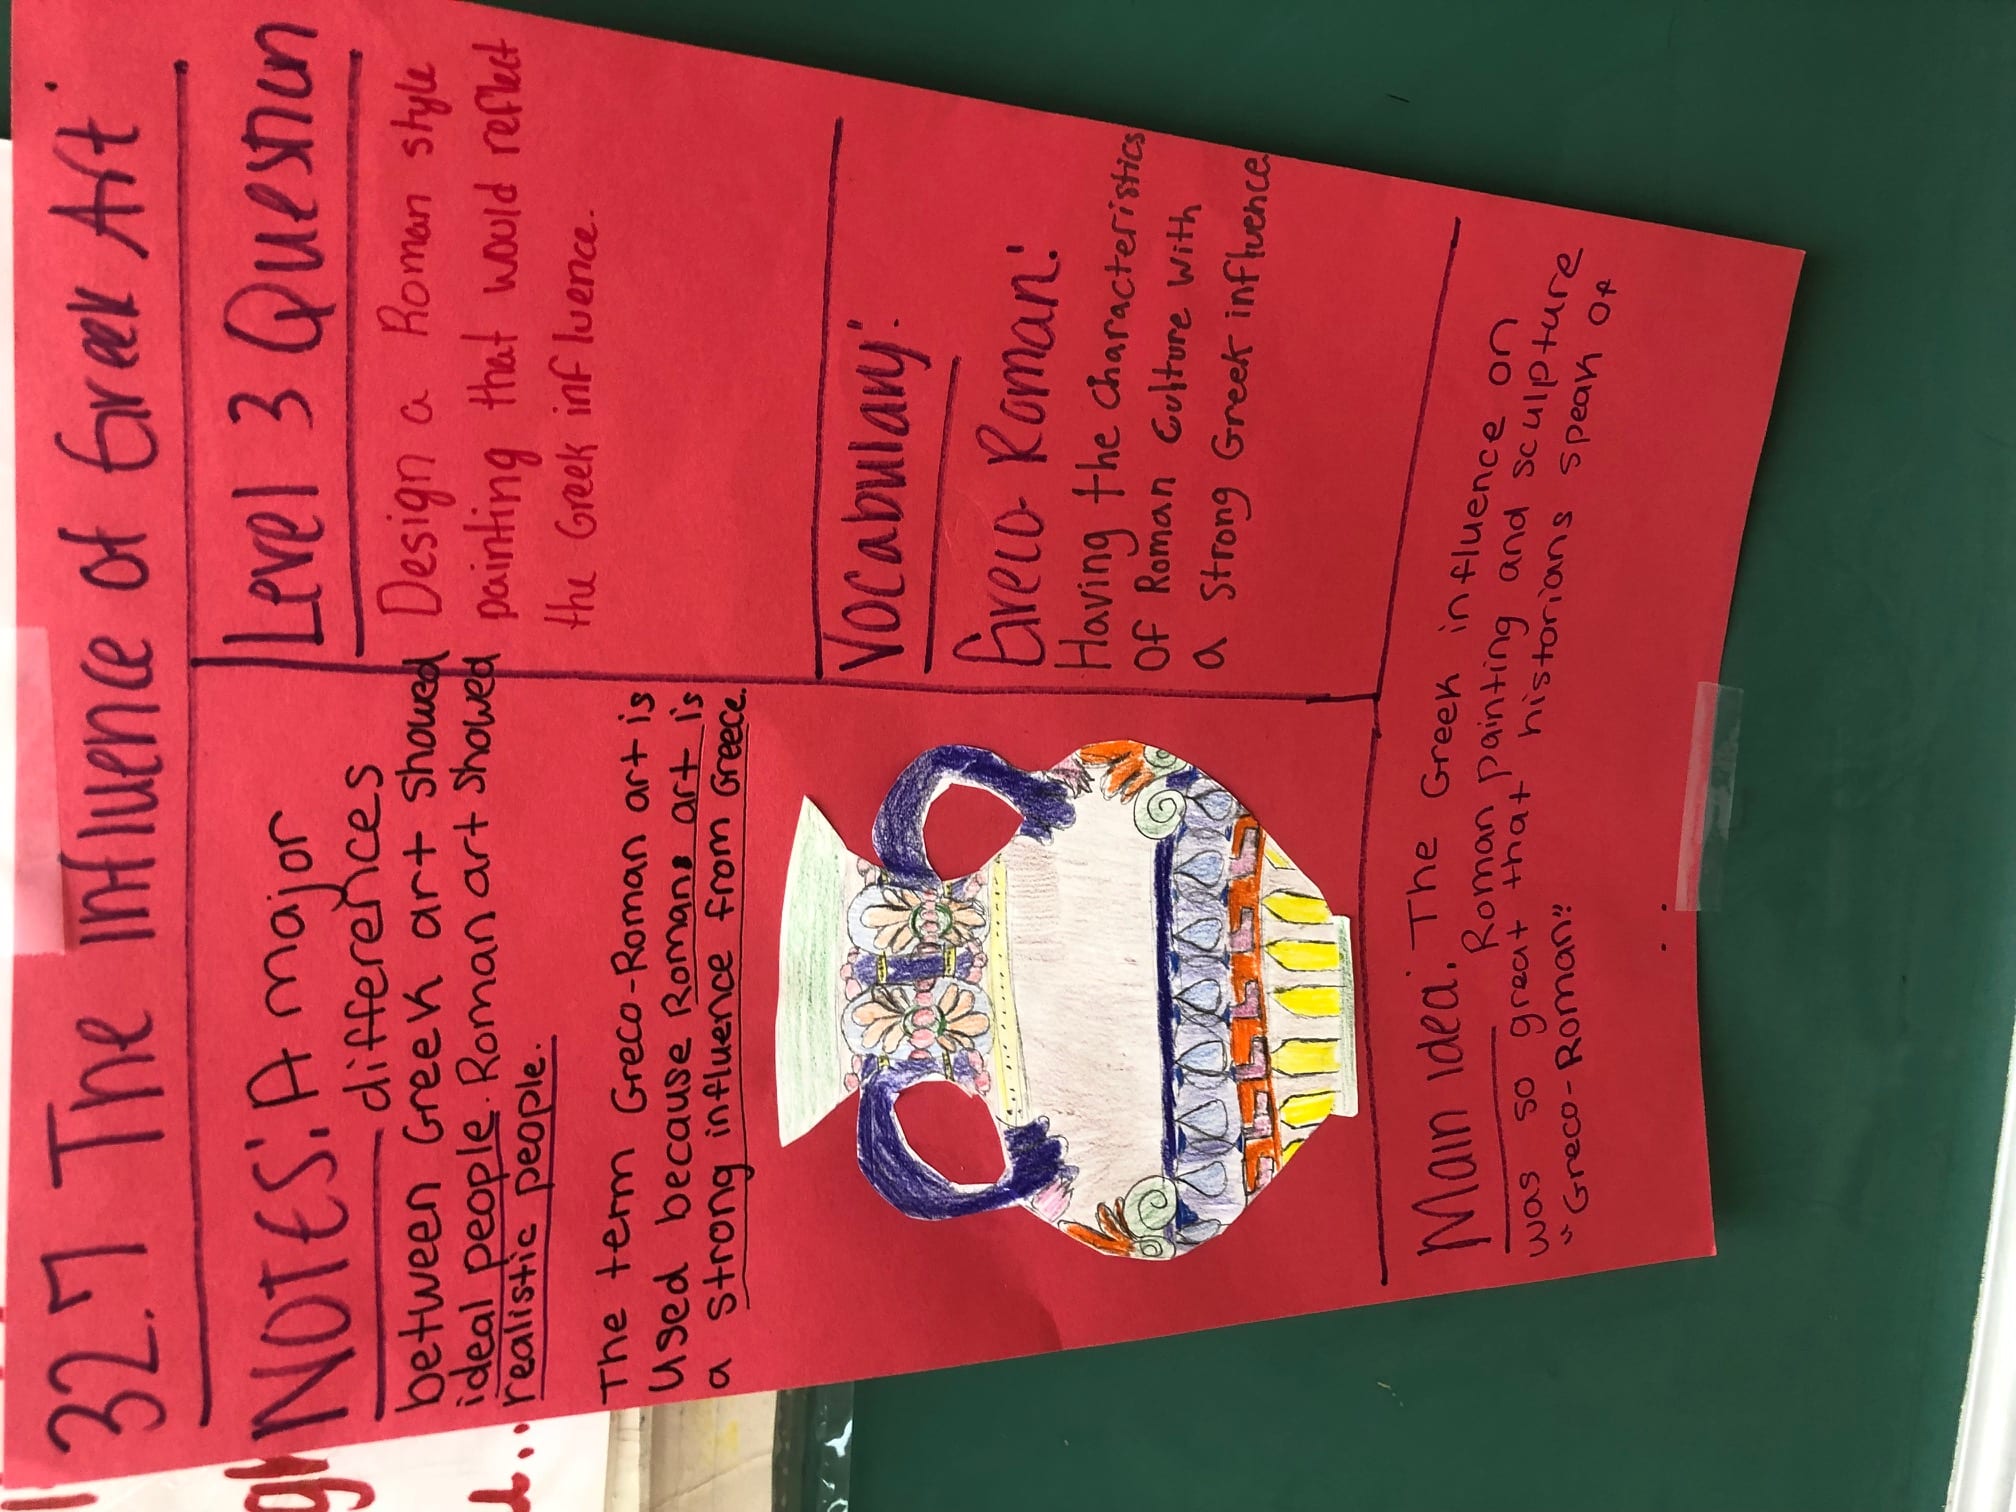 32.7 The Influence of Greek Art
NOTES: A major
differences
between Greek art showed
ideal people. Roman art showed
realistic people.
The term Greco-Roman art is
used because Romans art is
a strong influence from Greece.
Level 3 Question
Design a Roman style
painting that would reflect
the Greek influence.
Vocabulary:
Greco-Roman:
Having the characteristics
of Roman Culture with
a strong Greek influence.
Main idea: The Greek influence on
Roman painting and sculpture
was so great that that historians speak of
"Greco-Roman"